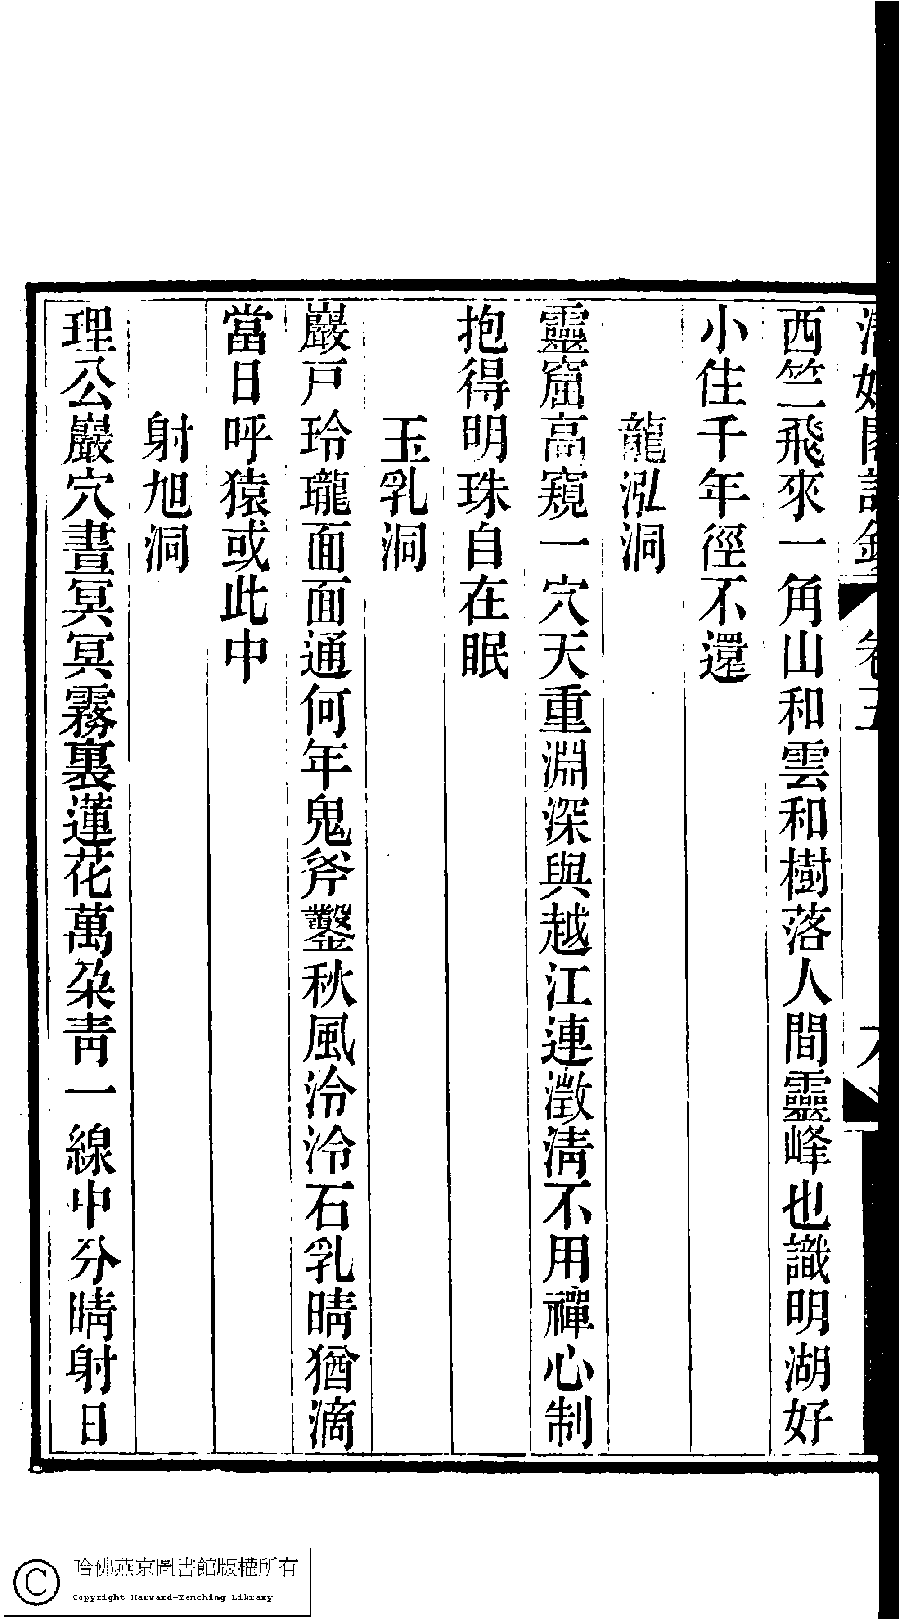 卷五
西竺飛來一角山和雲和樹落人間靈峰也識明湖好
小住千年徑不還
龍泓洞
靈窟高窺一穴天重淵深與越江連澂淸不用禪心制
抱得明珠自在眠
玉乳洞
巖戸玲瓏面面通何年鬼斧鑿秋風泠泠石乳晴猶滴
當日呼猿或此中
射旭洞
理公巖穴晝冥冥霧裏蓮花萬朶靑一線中分晴射日
哈佛燕京圖書館版權所有
Copyright Harvard-Yenching Library